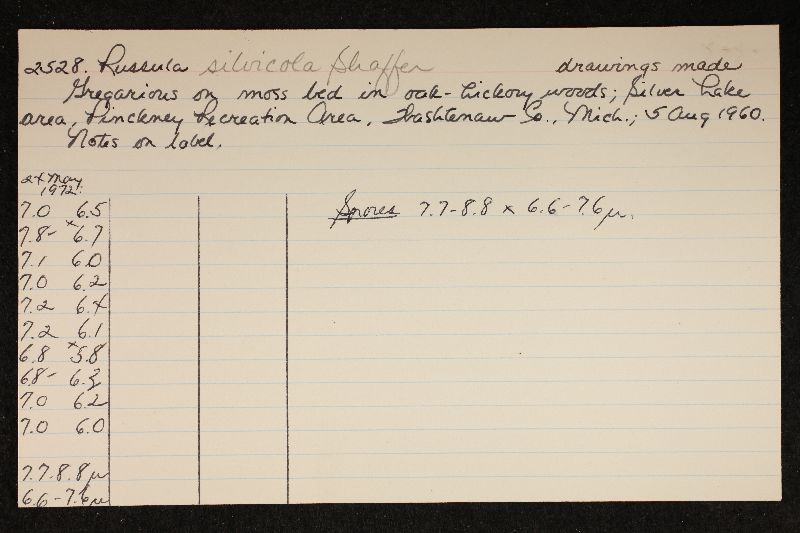 2528. Russula silvicola Shaffer drawings made
Gregarious on moss bed in oak-hickory woods; Silver Lake
area, Pinckney Recreation Area, Washtenaw Co., Mich.; 5 Aug 1960.
Notes on label.
24 May
1972:
7.0 6.5
7.8- ×6.7
7.1 6.0
7.0 6.2
7.2 6.4
7.2 6.1
6.8 ×5.8
6.8- 6.3
7.0 6.2
7.0 6.0
7.7-8.8μ
6.6-7.6μ
Spores 7.7-8.8 × 6.6-7.6μ.